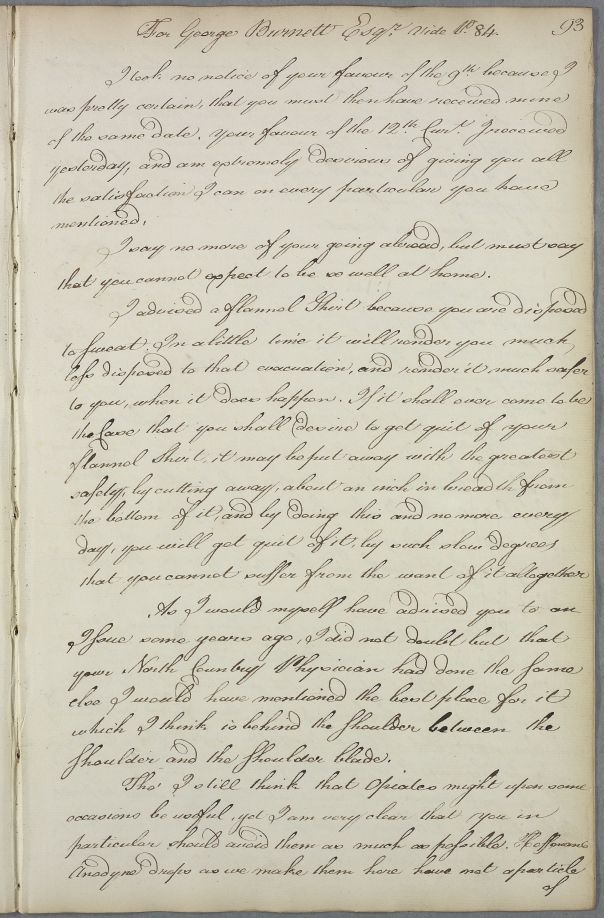 For George Burnett Esqr. Vide P. 84. 93
I took no notice of your favour of the 9th because I
was pretty certain, that you must then have received mine
of the same date. Your favour of the 12th Curt. I received
yesterday, and am extremely desirous of giving you all
the satisfaction I can on every particular you have
mentioned.
I say no more of your going abroad, but must say
that you cannot expect to be so well at home.
I advised a flannel Shirt because you are disposed
to sweat. In a little time it will render you much
less disposed to that evacuation, and render it much safer
to you, when it does happen. If it shall ever come to be
the Case that you shall desire to get quit of your
flannel Shirt, it may be put away with the greatest
safety, by cutting away, about an inch in breadth from
the bottom of it, and by doing this and no more every
day, you will get quit of it, by such slow degrees
that you cannot suffer from the want of it altogether
As I would myself have advised you to an
Issue some years ago, I did not doubt but that
your North Country Physician had done the same
else I would have mentioned the best place for it
which I think is behind the Shoulder between the
Shoulder and the Shoulder blade.
Tho' I still think that Opiates might upon some
occasions be useful, yet I am very clear that you in
particular should avoid them as much as possible. Hoffmans
Anodyne drops as we make them here have not a particle
of